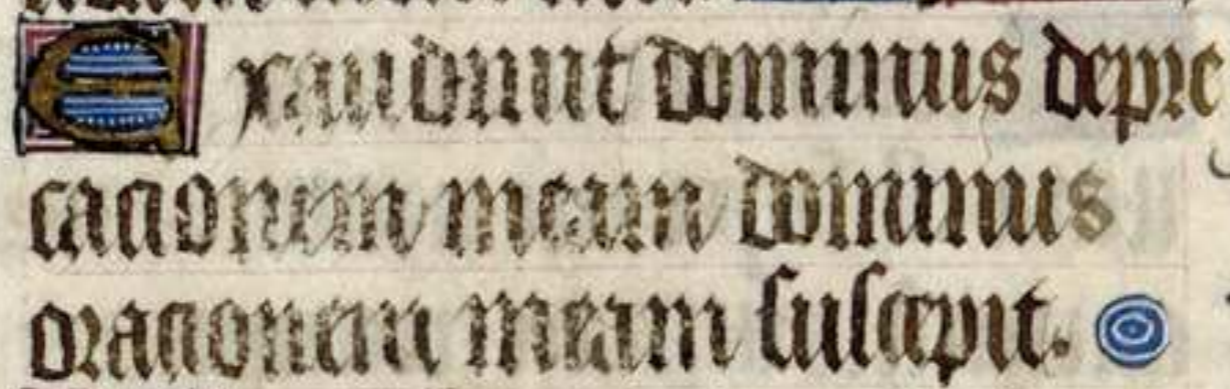 Exaudivit dominus depre
cacionem meam dominus
oracionem meam suscepit.